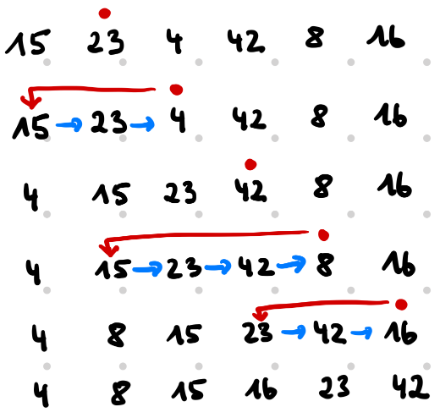 15 23 4 42 8 16
15 → 23 → 4 42 8 16
4 15 23 42 8 16
4 15 → 23 → 42 → 8 16
4 8 15 23 → 42 → 16
4 8 15 16 23 42